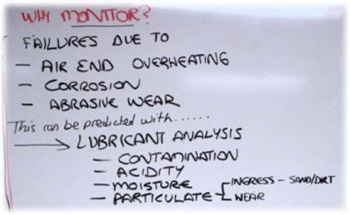 WHY MONITOR?
FAILURES DUE TO
— AIR END OVERHEATING
— CORROSION
— ABRASIVE WEAR
This can be predicted with......
→ LUBRICANT ANALYSIS
— CONTAMINATION
— ACIDITY
— MOISTURE
— PARTICULATE { INGRESS - SAND/DIRT
WEAR